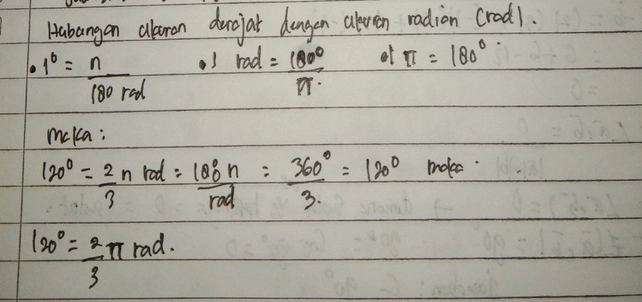 Hubungan ukuran derajat dengan ukuran radian (rad).
• 1° = n/180 rad • 1 rad = 180°/π. • π = 180°
maka:
120° = 2/3 n rad = 180° n/rad = 360°/3. = 120° maka
120° = 2/3 π rad.